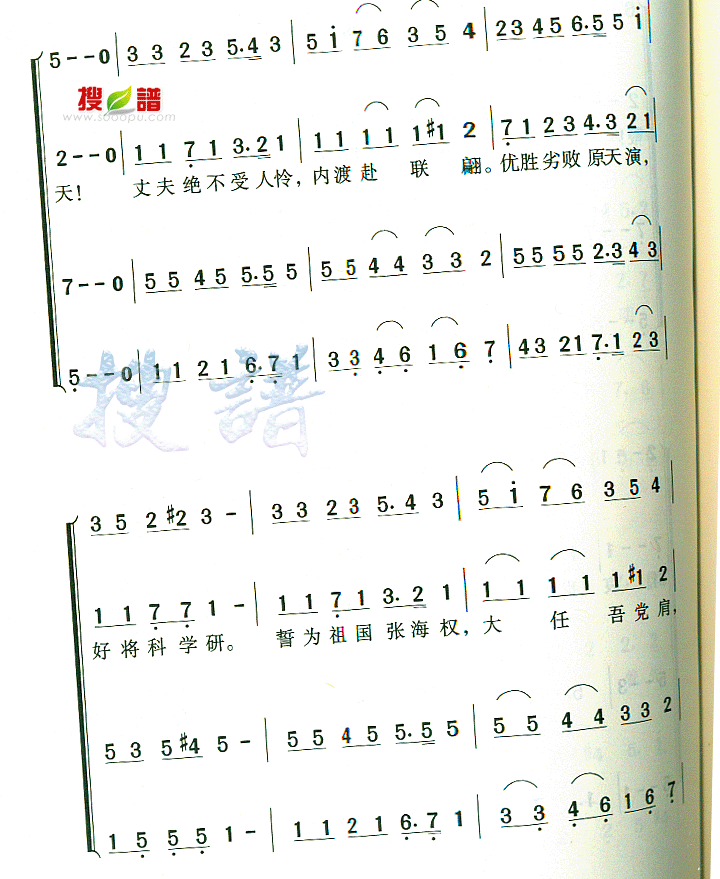 5 - - 0 | 3 3 2 3 5.4 3 | 5 i 7 6 3 5 4 | 23 45 6.5 5 i |
搜谱 www.sooopu.com
2 - - 0 | 1 1 7 1 3.2 1 | 1 1 1 1 1 #1 2 | 7 1 2 3 4.3 2 1 |
天! 丈夫绝不受人怜，内渡赴联翩。优胜劣败原天演，
7 - - 0 | 5 5 4 5 5.5 5 | 5 5 4 4 3 3 2 | 5 5 5 5 2.3 4 3 |
5 - - 0 | 1 1 2 1 6.7 1 | 3 3 4 6 1 6 7 | 4 3 2 1 7.1 2 3 |
搜譜
3 5 2 #2 3 - | 3 3 2 3 5.4 3 | 5 i 7 6 3 5 4 |
1 1 7 7 1 - | 1 1 7 1 3.2 1 | 1 1 1 1 1 #1 2 |
好将科学研。 誓为祖国张海权，大任吾党肩，
5 3 5 #4 5 - | 5 5 4 5 5.5 5 | 5 5 4 4 3 3 2 |
1 5 5 5 1 - | 1 1 2 1 6.7 1 | 3 3 4 6 1 6 7 |